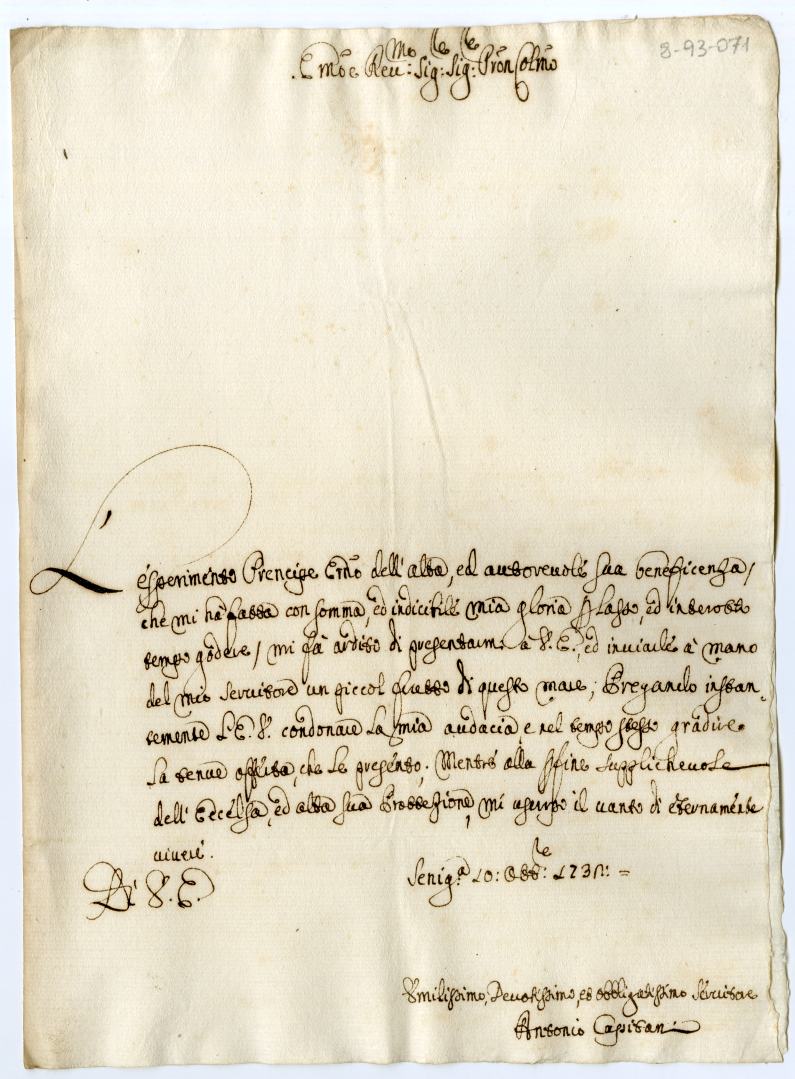 8-93-071
Emõ e Reu:mo Sig:le Sig:le Prõn Colmõ
L'esperimento Prencipe Emõ dell'alta, ed autoreuole sua beneficenza /
che mi hà fatta con somma, ed indicibile mia gloria
tempo godere / mi fà ardito di presentarmi à V. E., ed inuiarle à mano
del mio seruitore un piccol frutto di questo mare; Pregando instan,
temente L'E. V. condonare la mia audacia e nel tempo stesso gradire
la tenue offerta, che le presento; Mentre alla supplicheuole
dell'Eccelsa, ed alta sua Protezione, mi usurpo il uanto di eternamente
uiuere.
Di V. E.
Senig:a 10: Ott:le 173
Vmilissimo, Deuotissimo, ed obbligatissimo seruitore
Antonio Capitani